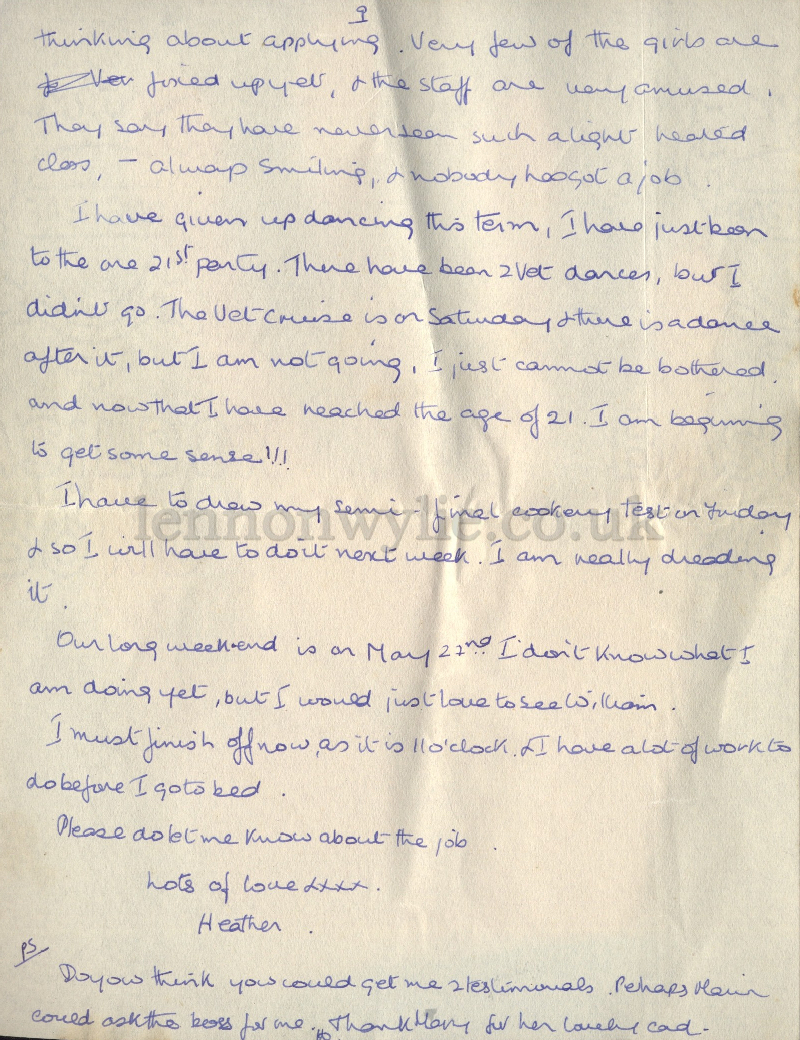 9
thinking about applying. Very few of the girls are
fixed up yet, & the staff are very amused.
They say they have never seen such a light hearted
class, - always smiling, & nobody has got a job.
I have given up dancing this term, I have just been
to the one 21st party. There have been 2 Vet dances, but I
didn't go. The Vet Cruise is on Saturday & there is a dance
after it, but I am not going, I just cannot be bothered,
and now that I have reached the age of 21. I am beginning
to get some sense!!!
I have to draw my semi-final cookery test on Friday
lennonwylie.co.uk
& so I will have to do it next week. I am really dreading
it.
Our long week-end is on May 22nd!! I don't know what I
am doing yet, but I would just love to see William.
I must finish off now, as it is 11 o'clock. & I have a lot of work to
do before I go to bed.
Please do let me know about the job.
Lots of love xxxx.
Heather.
PS
Do you think you could get me 2 testimonials. Perhaps
could ask the boss for me. Thank Mary for her lovely card.